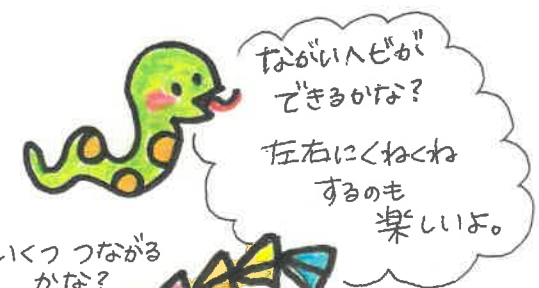 ながいヘビが
できるかな?
左右にくねくね
するのも
楽しいよ。
いくつ つながる
かな?